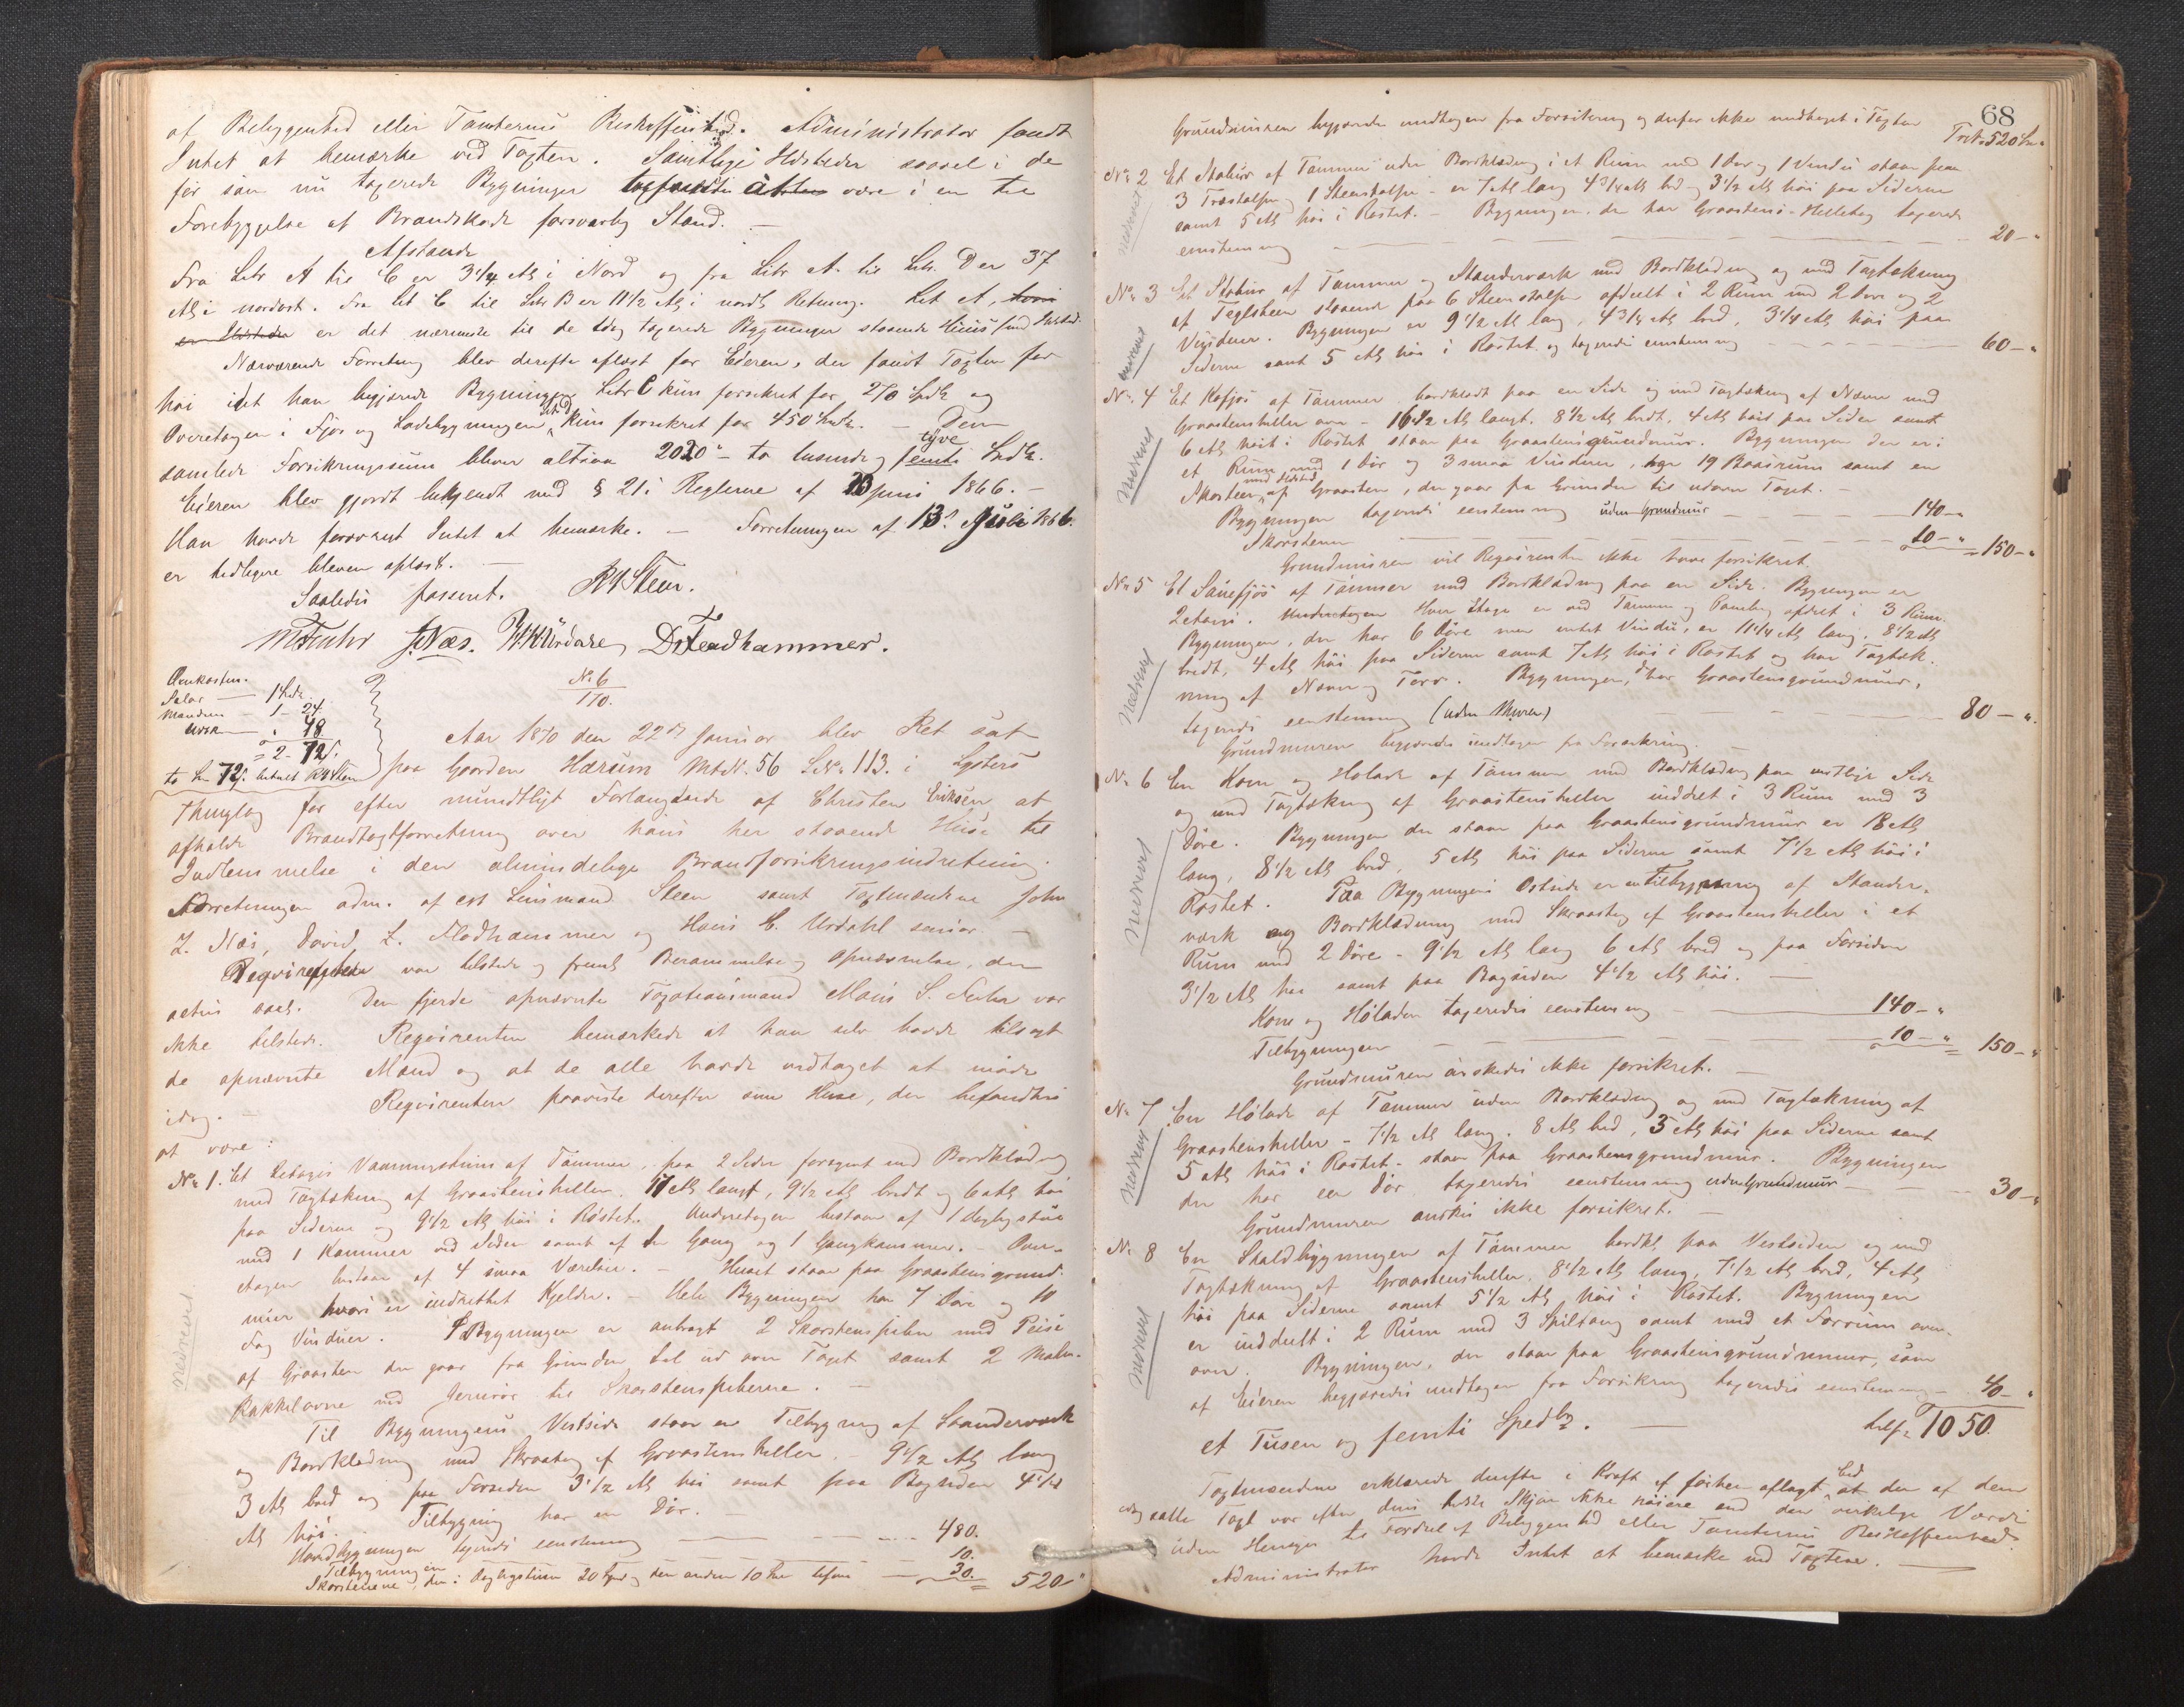 af Beliggenhed eller Tomternes Beskaffenhed. Administrator fandt
Intet at bemærke ved Taxten. Samtlige Ildsteder saavel i de
før som nu taxerede Bygninger befandtes at være i en til
Forebyggelse af Brandskade forsvarlig Stand. —
Afstande
Fra Litr A til C er 3 1/4 Al i Nord og fra Litr A til Litr. D er 37
Al i nordost. Fra Lit C til Litr B er 11 1/2 Al i nordl Retning. Lit A, hvori
er Ildsteder er det nærmeste til de idag taxerede Bygninger staaende Huus med Ildsted.
Nærværende Forretning blev derefter oplæst for Eieren, der fandt Taxten for
høi idet han begjærede Bygningen Litr C kun forsikret for 270 Spdl og
Overetagen i Fjøs og Ladebygningen kun forsikret for 450 Spdl. — Den
samlede Forsikringssum bliver altsaa 2020 „ — to tusinde og femti tyve Spdl.
Eieren blev gjordt bekjendt med § 21 i Reglerne af 23 Juni 1866. —
Han havde forøvrigt Intet at bemærke. — Forretningen af 13de Juli 1866.
er tidligere bleven oplæst. —
Saaledes passeret. RSteen.
MFuhr J. Næs. HHUrdahl D. Fladhammer.
Omkosten.
Salær — 1 Spdl.
Mændene — 1 - 24.
„ 48
= 2 - 72 s.
to Spd 72 s. betalt RSteen
No 6
1/70.
Aar 1870 den 22de Januar blev Ret sat
paa Gaarden Hærum MtN. 56 LNo. 113. i Lysters
Thinglag for efter mundtligt Forlangende af Christen Eriksen at
afholde Brandtaxtforretning over hans her staaende Huse til
Indlemmelse i den almindelige Brandforsikringsindretning.
Forretningen adm. af Lensmand Steen samt Taxtmændene John
J. Næs, David L. Fladhammer og Hans H. Urdahl senior. —
Reqvirenten var tilstede og freml Berammelse og Opnævnelse, der
actis saal. Den fjerde opnævnte Taxationsmand Mons S. Fuhr var
ikke tilstede. Reqvirenten bemærkede at han selv havde tilsagt
de opnævnte Mænd og at de alle havde vedtaget at møde
idag. — Reqvirenten paaviste derefter sine Huse, der befandtes
at være:
No 1. Et 2etages Vaaningshuus af Tømmer, paa 2 Sider forsynet med Bordklædning
med Tagtækning af Graastensheller. 17 Al langt, 9 1/2 Al bredt og 6 Al høi
paa Siderne og 9 1/2 Al høi i Røstet. Underetagen bestaar af 1 Dagligstue
med 1 Kammer ved Siden samt af en Gang og 1 Gangkammer. — Over-
etagen bestaar af 4 smaa Værelser. — Huset staar paa Graastensgrund-
muur hvori er indrettet Kjelder. — Hele Bygningen har 7 Døre og 10
Fag Vinduer. I Bygningen er anbragt 2 Skorstenspiber med Peise
af Graasten der gaar fra Grunden til ud over Taget samt 2 Malm-
kakkelovne med Jernrør til Skorstenspiberne. —
Til Bygningens Vestside staar en Tilbygning af Standerværk
og Bordklædning med Skraatag af Graastensheller. — 9 1/2 Al lang
3 Al bred og paa Forsiden 3 1/2 Al høi samt paa Bagsiden 4 1/2
Al høi. — Tilbygning har en Dør. —
Hovedbygningen taxeredes eenstemmig — 480.
Tilbygningen — 10.
Skorstenene, den i Dagligstuen 20 Spd og den anden 10 Spd — 30. = 520 „
nedrevet
68
Grundmuren begjærede undtagen fra Forsikring og derfor ikke medtaget i Taxten
Trst. 520 Spd.
No 2 Et Stabur af Tømmer uden Bordklædning i et Rum med 1 Dør og 1 Vindu staar paa
3 Træstolper og 1 Steenstolpe — er 7 Al lang 4 3/4 Al bred og 3 1/2 Al høi paa Siderne
samt 5 Al høi i Røstet. — Bygningen, der har Graastens-Helletag taxeredes
eenstemmig — 20 — „
nedrevet
No 3 Et Stabur af Tømmer og Standerværk med Bordklædning og med Tagtækning
af Teglsteen staaende paa 6 Steenstolper afdeelt i 2 Rum med 2 Døre og 2
Vinduer. Bygningen er 9 1/2 Al lang, 4 3/4 Al bred, 3 1/4 Al høi paa
Siderne samt 5 Al høi i Røstet og taxeredes eenstemmig — 60 — „
nedrevet
No. 4 Et Kofjøs af Tømmer bordklædt paa en Side og med Tagtækning af Næver med
Graastensheller over — 16 1/2 Al langt. 8 1/2 Al bredt, 4 Al høit paa Siden samt
6 Al høit i Røstet staar paa Graastensgrundmur. Bygningen der er i
et Rum med 1 Dør og 3 smaa Vinduer, har 19 Baasrum samt en
Skorsteen med Ildsted af Graasten, der gaar fra Grunden til udover Taget. —
Bygningen taxeredes eenstemmig uden Grundmur — 140 — „
Skorstenen — 10 — „ = 150 — „
Grundmuren vil Reqvirenten ikke have forsikret.
nedrevet
No 5 Et Sauefjøs af Tømmer med Bordklædning paa en Side. Bygningen er
2etages. Underetagen Hver Etage er ved Tømmer og Paneling afdeelt i 3 Rum.
Bygningen, der har 6 Døre men intet Vindu, er 11 1/4 Al lang, 8 1/2 Al
bredt, 4 Al høi paa Siderne samt 7 Al høi i Røstet og har Tagtæk-
ning af Næver og Torv. Bygningen, der har Graastensgrundmuur,
taxeredes eenstemmig (uden Muren) — 80 — „
Grundmuren begjæredes undtagen fra Forsikring. —
nedrevet
No. 6 En Korn og Hølade af Tømmer med Bordklædning paa vestlige Side
og med Tagtækning af Graastensheller inddelt i 3 Rum med 3
Døre. Bygningen der staar paa Graastensgrundmuur er 18 Al
lang, 8 1/2 Al bred, 5 Al høi paa Siderne samt 7 1/2 Al høi i
Røstet. Paa Bygningens Ostside er en Tilbygning af Stander-
værk og Bordklædning med Skraatag af Graastensheller i et
Rum med 2 Døre — 9 1/2 Al lang 6 Al bred og paa Forsiden
3 1/2 Al høi samt paa Bagsiden 4 1/2 Al høi. —
Korn og Høladen taxeredes eenstemmig — 140 — „
Tilbygningen — 10 — „ = 150 — „
Grundmuren ønskedes ikke forsikret. —
nedrevet
No 7 En Hølade af Tømmer uden Bordklædning og med Tagtækning af
Graastensheller — 7 1/2 Al lang. 8 Al bred, 3 Al høi paa Siderne samt
5 Al høi i Røstet — staar paa Graastensgrundmur. Bygningen
der har een Dør taxeredes eenstemmig uden Grundmur — 30 — „
Grundmuren ønskes ikke forsikret. —
nedrevet
No 8 En Staldbygningen af Tømmer bordkl. paa Vestsiden og med
Tagtækning af Graastensheller. 8 1/2 Al lang, 7 1/2 Al bred, 4 Al
høi paa Siderne samt 5 1/2 Al høi i Røstet. Bygningen
er inddeelt i 2 Rum med 3 Spiltoug samt med et Forrum oven-
over. Bygningen, der staar paa Graastensgrundmuur, som
af Eieren begjæredes undtagen fra Forsikring taxeredes eenstemmig — 40 — „
et Tusen og femti Spedlr. — tilss. 1050.
nedrevet
Taxtmændene erklærede derefter i Kraft af før aflagt Eed at den af dem
idag satte Taxt var efter deres bedste Skjøn ikke høiere end den virkelige Værdi
uden Hensyn til Fordeel af Beliggenhed eller Tomternes Beskaffenhed.
Administrator havde Intet at bemærke ved Taxterne. —